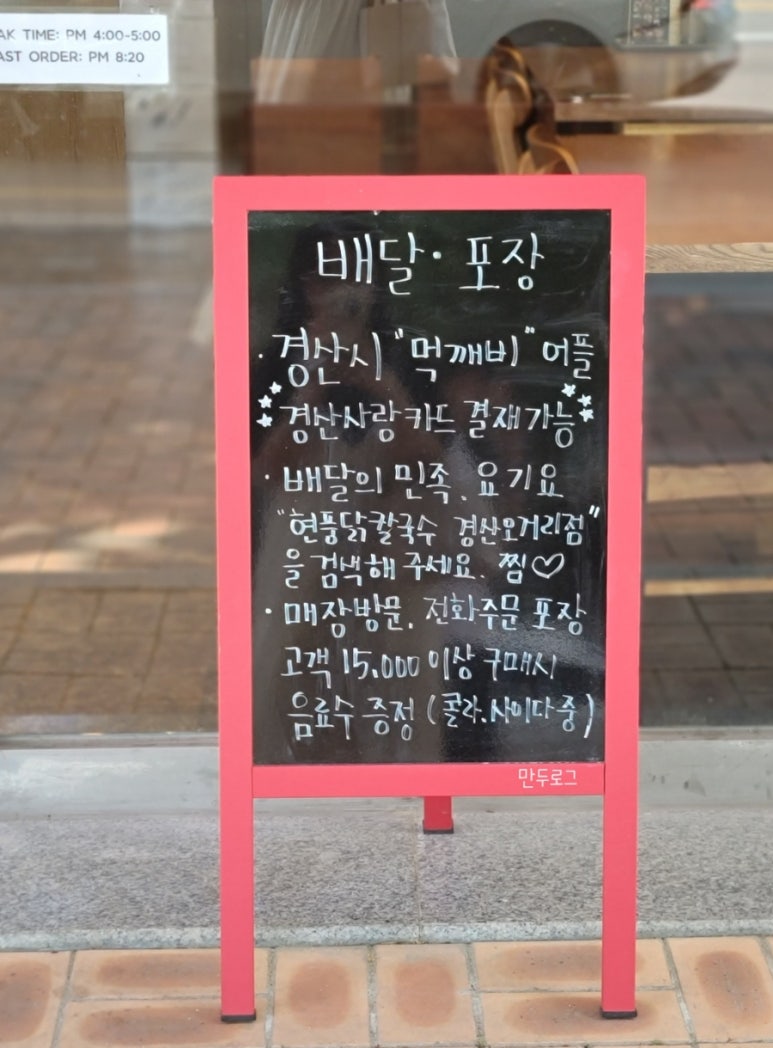 AK TIME: PM 4:00-5:00
AST ORDER: PM 8:20
배달·포장
· 경산시 "먹깨비" 어플
경산사랑카드 결재가능
· 배달의 민족, 요기요
"현풍닭칼국수 경산오거리점"
을 검색해 주세요. 찜♡
· 매장방문, 전화주문 포장
고객 15,000 이상 구매시
음료수 증정 (콜라,사이다 중)
만두로그